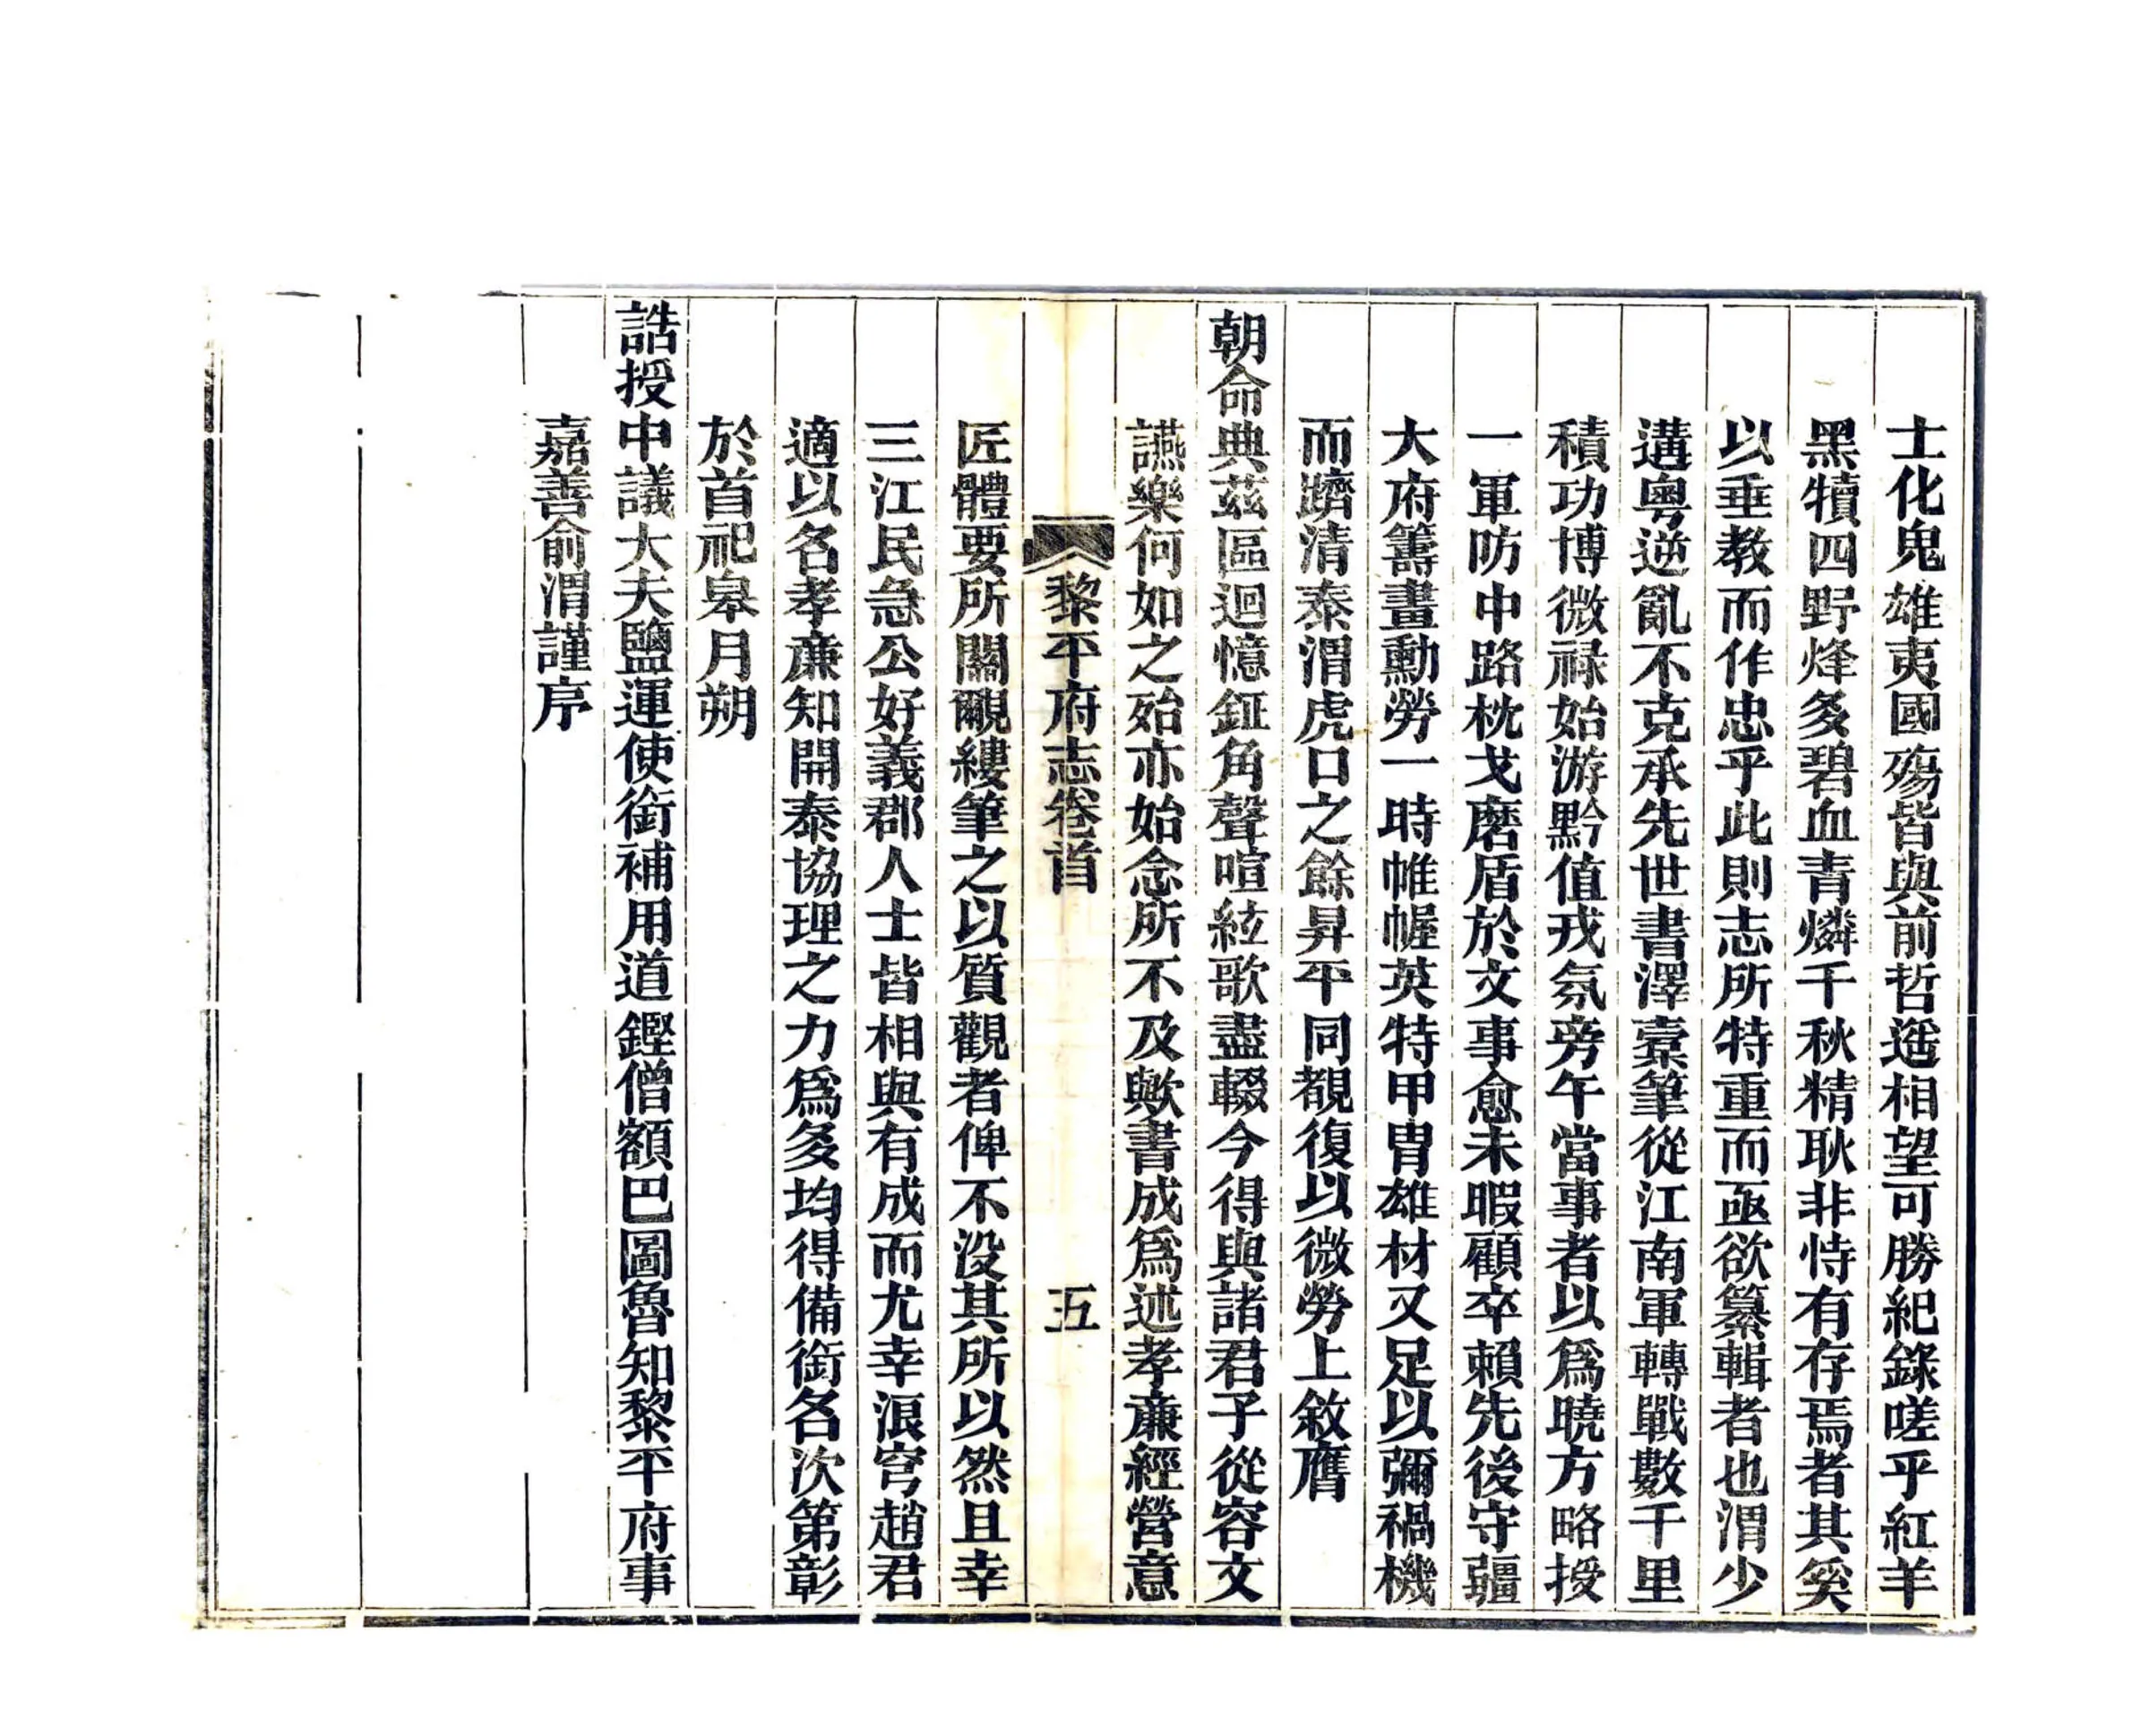 士化鬼雄夷國殤皆與前哲遥相望可勝紀錄嗟乎紅羊
黑犢四野烽多碧血青燐千秋精耿非恃有存焉者其奚
以垂教而作忠乎此則志所特重而亟欲纂輯者也渭少
遘粤逆亂不克承先世書澤橐筆從江南軍轉戰數千里
積功博微祿始游黔值戎氛旁午當事者以爲曉方略授
一軍防中路枕戈磨盾於文事愈未暇顧卒賴先後守疆
大府籌畫勳勞一時帷幄英特甲冑雄材又足以彌禍機
而躋清泰渭虎口之餘昇平同覩復以微勞上敘膺
朝命典茲區迴憶鉦角聲喧絃歌盡輟今得與諸君子從容文
讌樂何如之殆亦始念所不及歟書成爲述孝廉經營意
黎平府志卷首 五
匠體要所關覼縷筆之以質觀者俾不没其所以然且幸
三江民急公好義郡人士皆相與有成而尤幸浪穹趙君
適以名孝廉知開泰協理之力爲多均得備銜名次第彰
於首祀皋月朔
誥授中議大夫鹽運使銜補用道鏗僧額巴圖魯知黎平府事
嘉善俞渭謹序